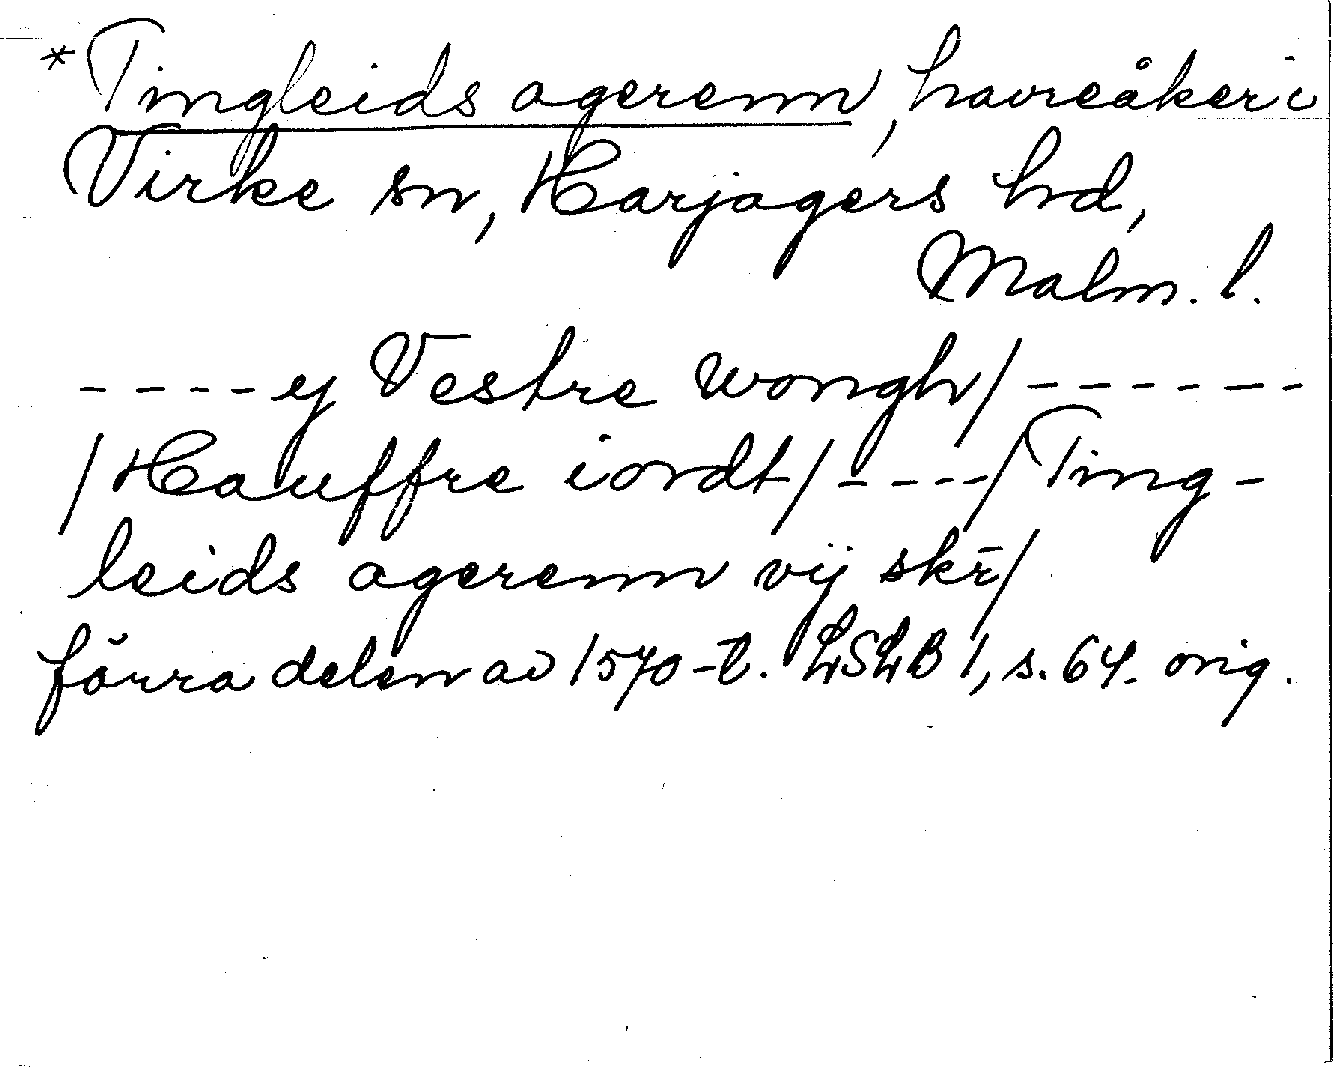 *Tingleids agerenn, havreåker i
Virke sn, Harjagers hd,
Malm. l.
----ej Vestre wongh/------
/Hauffre iordt/----/Ting-
leids agerenn vij skr̄/
förra delen av 1570-t. LSLB 1, s. 64. orig.